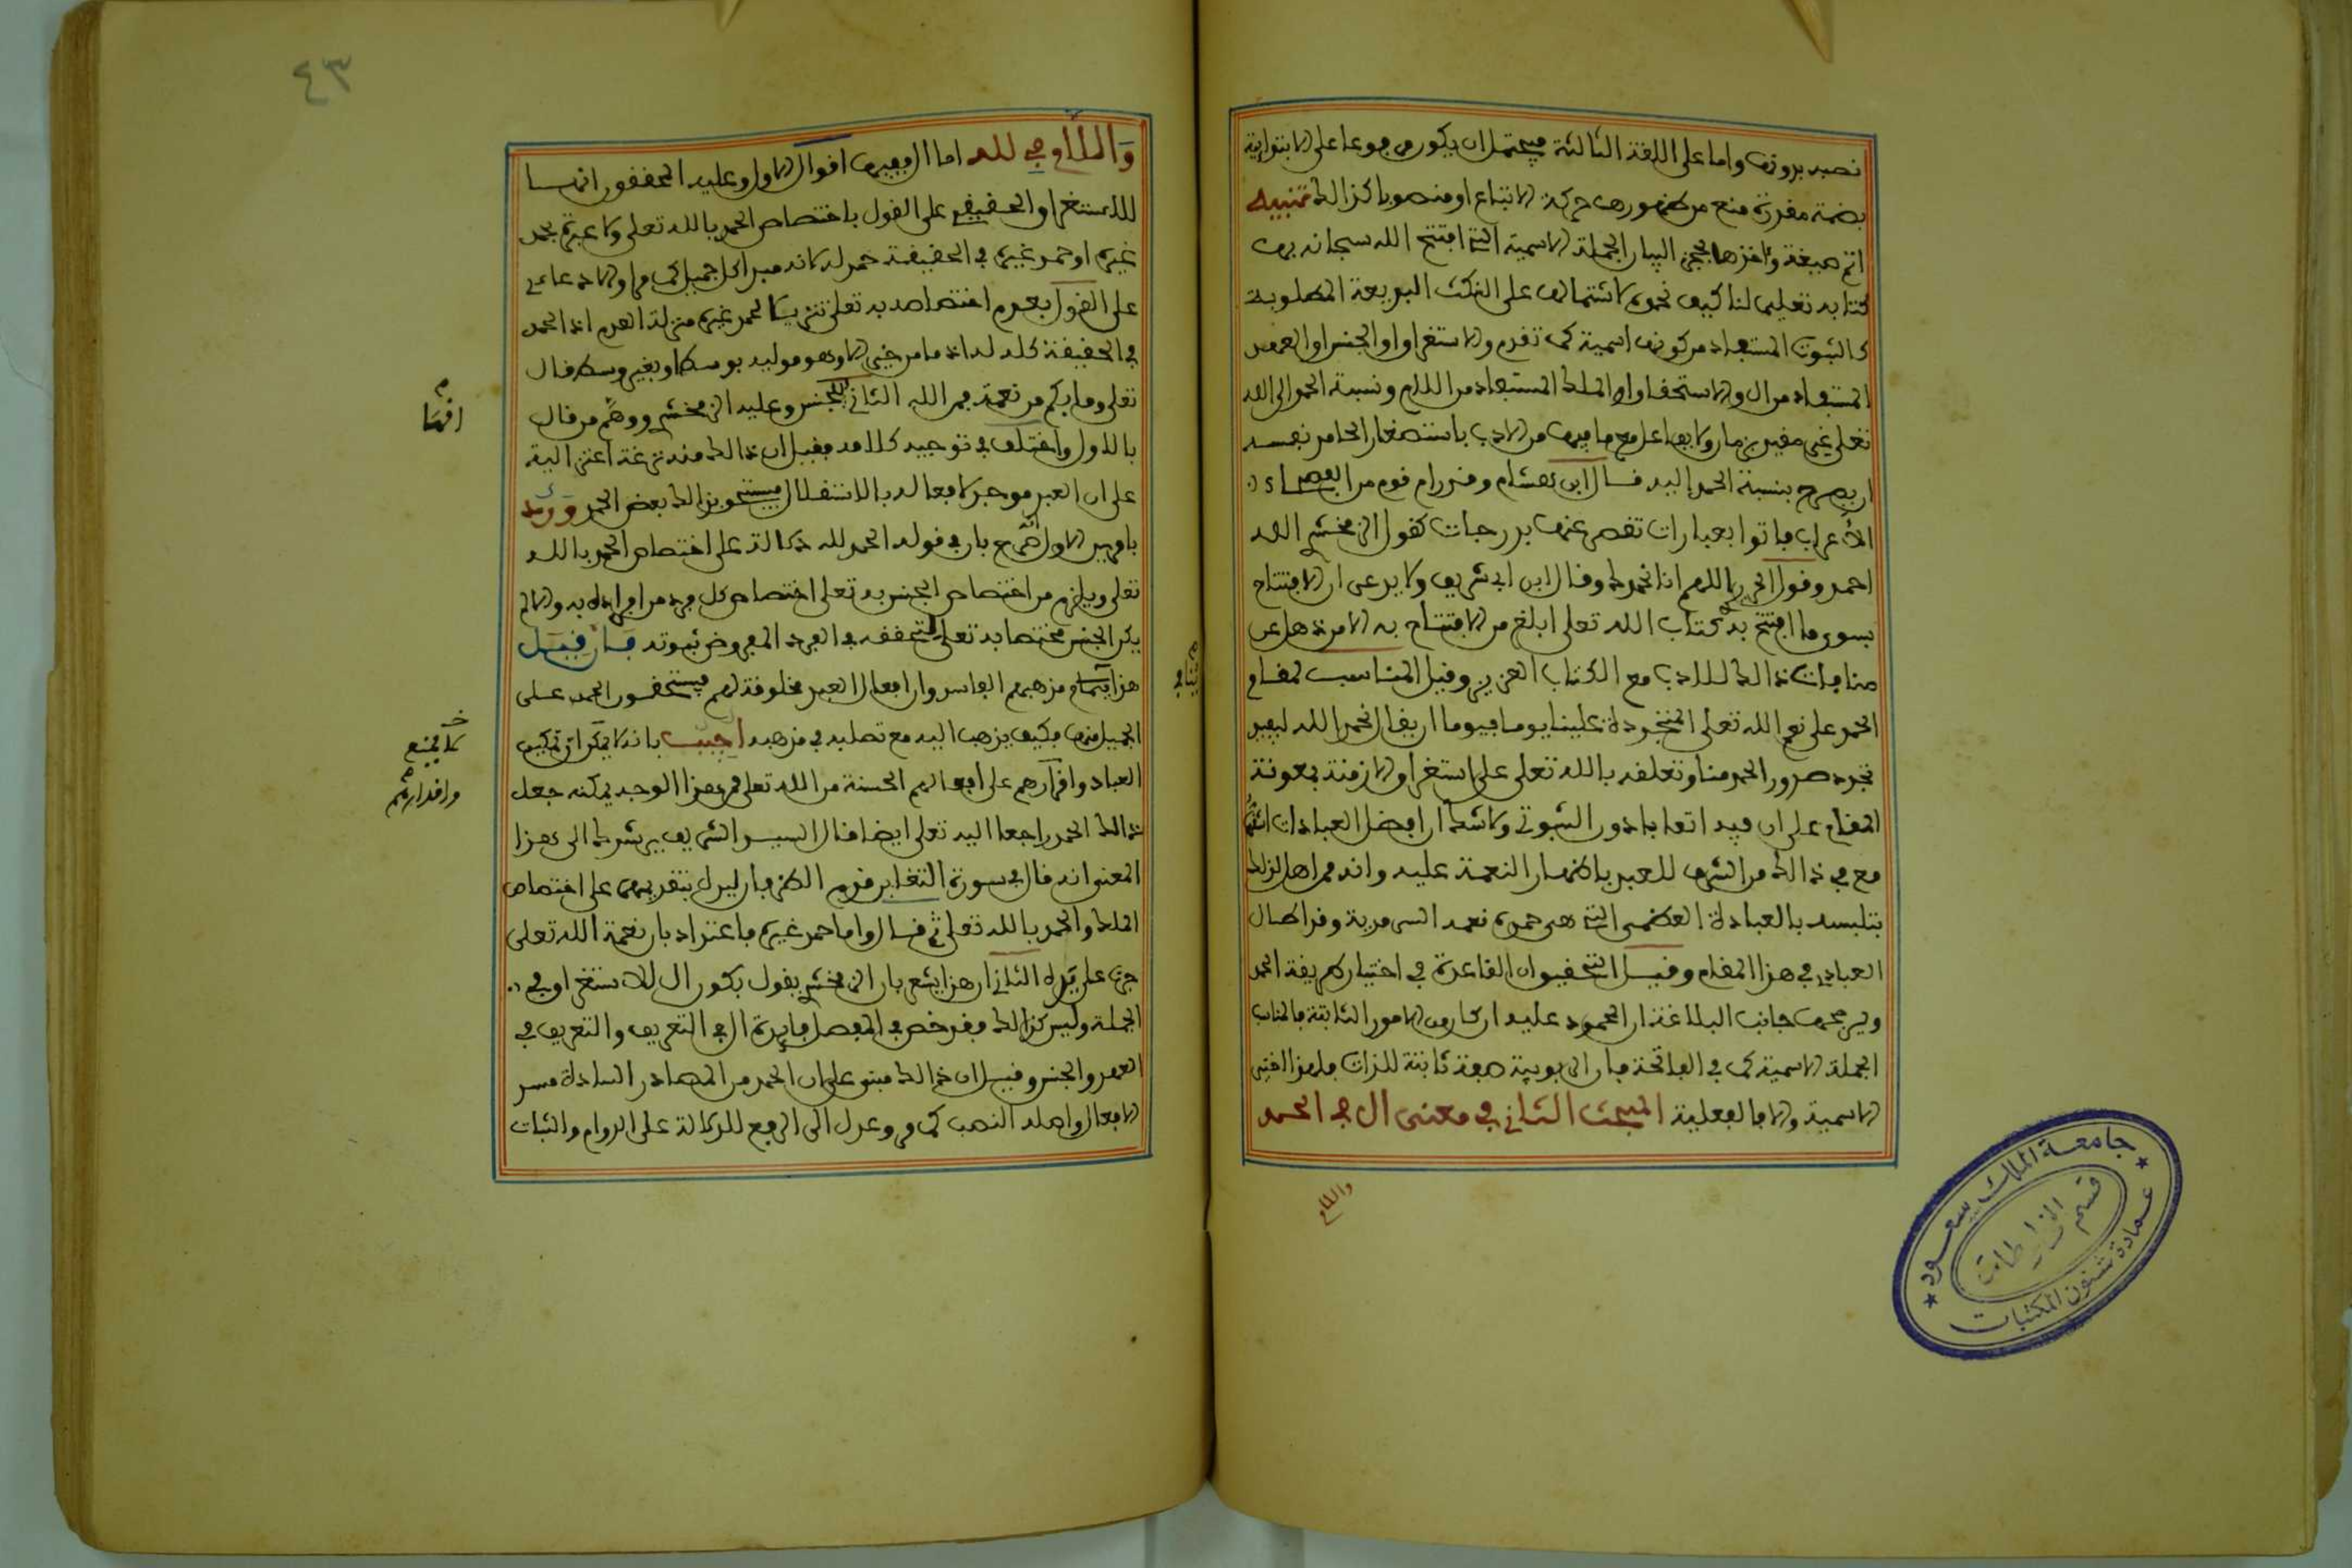 نصبه بدونها واما على اللغة الثالثة فيحتمل ان يكون مرفوعا على الابتداء
بضمة مقدرة منع من ظهورها حركة الاتباع او منصوبا كذالك تنبيه
اتم صيغة واخزها الجملة الاسمية التي افتتح الله سبحانه بها
كتابه تعليما لنا كيف نحمده لاشتمالها على النكت البديعة المطلوبة
كالثبوت المستفاد من كونها اسمية كما تقدم والاستغراق او الجنس او العهد
المستفاد من ال والاستحقاق او الملك المستفاد من اللام ونسبة الحمد الى الله
تعلى غير مقيد بزمان ولا بفاعل مع ما فيها من الادب باستصغار الحامد نفسه
ان يصرح بنسبة الحمد اليه قال ابن هشام وقد رام قوم من الفصحاء
الاعراب فاتوا بعبارات تنقص عنها بدرجات كقول الزمخشري الله
احمد وقول الحريري اللهم انا نحمدك وقال ابن ابي شريف ولا يدعى ان الافتتاح
بسوى ما افتتح به كتاب الله تعلى ابلغ من الافتتاح به الا من ذهل عن
منافات ذالك للادب مع الكتاب العزيز وقيل المناسب لمقام
الحمد على نعم الله تعلى المتجددة علينا يوما فيوما ان يقال نحمد الله ليفيد
تجرد صدور الحمد منا وتعلقه بالله تعلى على استغراق الازمنة بمعونة
المقام على ان فيه اتعابا دون الثبوتي ولا شك ان افضل العبادات اشقها
مع في ذالك من الشرف للعبد باظهار النعمة عليه وانه من اهل لذلك
بتلبسه بالعبادة العظمى التي هي حمده نعمه السرمدية وقد اطال
العبادي في هذا المقام وقيل التحقيق ان القاعدة في اختيار طريقة الحمد
وترجيحها جانب البلاغة ان المحمود عليه ان كان من الامور الثابتة فالمناسب
الجملة الاسمية كما في الفاتحة فان الربوبية صفة ثابتة للذات فلهذا اختير
الاسمية والا فالفعلية المبحث الثاني في معنى ال في الحمد
واللام
جامعة الملك سعود
عمادة شئون المكتبات
قسم المخطوطات
٤٣
واللام في لله اما ال ففيها اقوال الاول وعليه المحققون انها
للاستغراق الحقيقي على القول باختصاص الحمد بالله تعلى ولا عبرة بحمد
غيره او حمد غيره في الحقيقة حمد له لانه مبدا كل جميل كما مر او الادعاءي
على القول بعدم اختصاصه به تعلى تنزيلا لحمد غيره منزلة العدم اذ الحمد
في الحقيقة كله له اذ ما من خير الا وهو موليه بوسط او بغير وسط قال
تعلى وما بكم من نعمة فمن الله الثاني للجنس وعليه الزمخشري ووهم من قال
بالاول واختلف في توجيه كلامه فقيل ان ذالك منه نزغة اعتزالية
على ان العبد موجد لافعاله بالاستقلال فيستحق بذالك بعض الحمد ورد
بامرين الاول انه صرح بان في قوله الحمد لله دلالة على اختصاص الحمد بالله
تعلى ويلزم من اختصاص الجنس به تعلى اختصاص كل فرد من افراده به والا لم
يكن الجنس مختصا به تعلى لتحققه في الفرد المفروض ثبوته فان قيل
هذا ينافي مذهبهم الفاسد وان افعال العبد مخلوقة لهم فيستحقون الحمد على
الجميل منها فكيف يذهب اليه مع تصلبه في مذهبه اجيب بانه لا ينكر ان تمكين
العباد واقدارهم على افعالهم الحسنة من الله تعلى فمن هذا الوجه يمكنه جعل
ذالك الحمد راجعا اليه تعلى ايضا قال السيد الشريف يرشدك الى هذا
المعنى انه قال في سورة التغابن قدم الظرفان ليدل بتقديمهما على اختصاص
الملك والحمد بالله تعلى ثم قال واما حمد غيره فاعتداد بان نعمة الله تعلى
جرت على يده الثاني ان هذا يشعر بان الزمخشري يقول بكون ال للاستغراق في
الجملة وليس كذالك فقد خص في المفصل فايدة ال في التعريف والتعريف في
العهد والجنس وقيل ان ذالك مبني على ان الحمد من المصادر السادة مسد
الافعال واصله النصب كما مر وعدل الى الرفع للدلالة على الدوام والثبات
افهما
ينافي
لا يمنع
واقدارهم